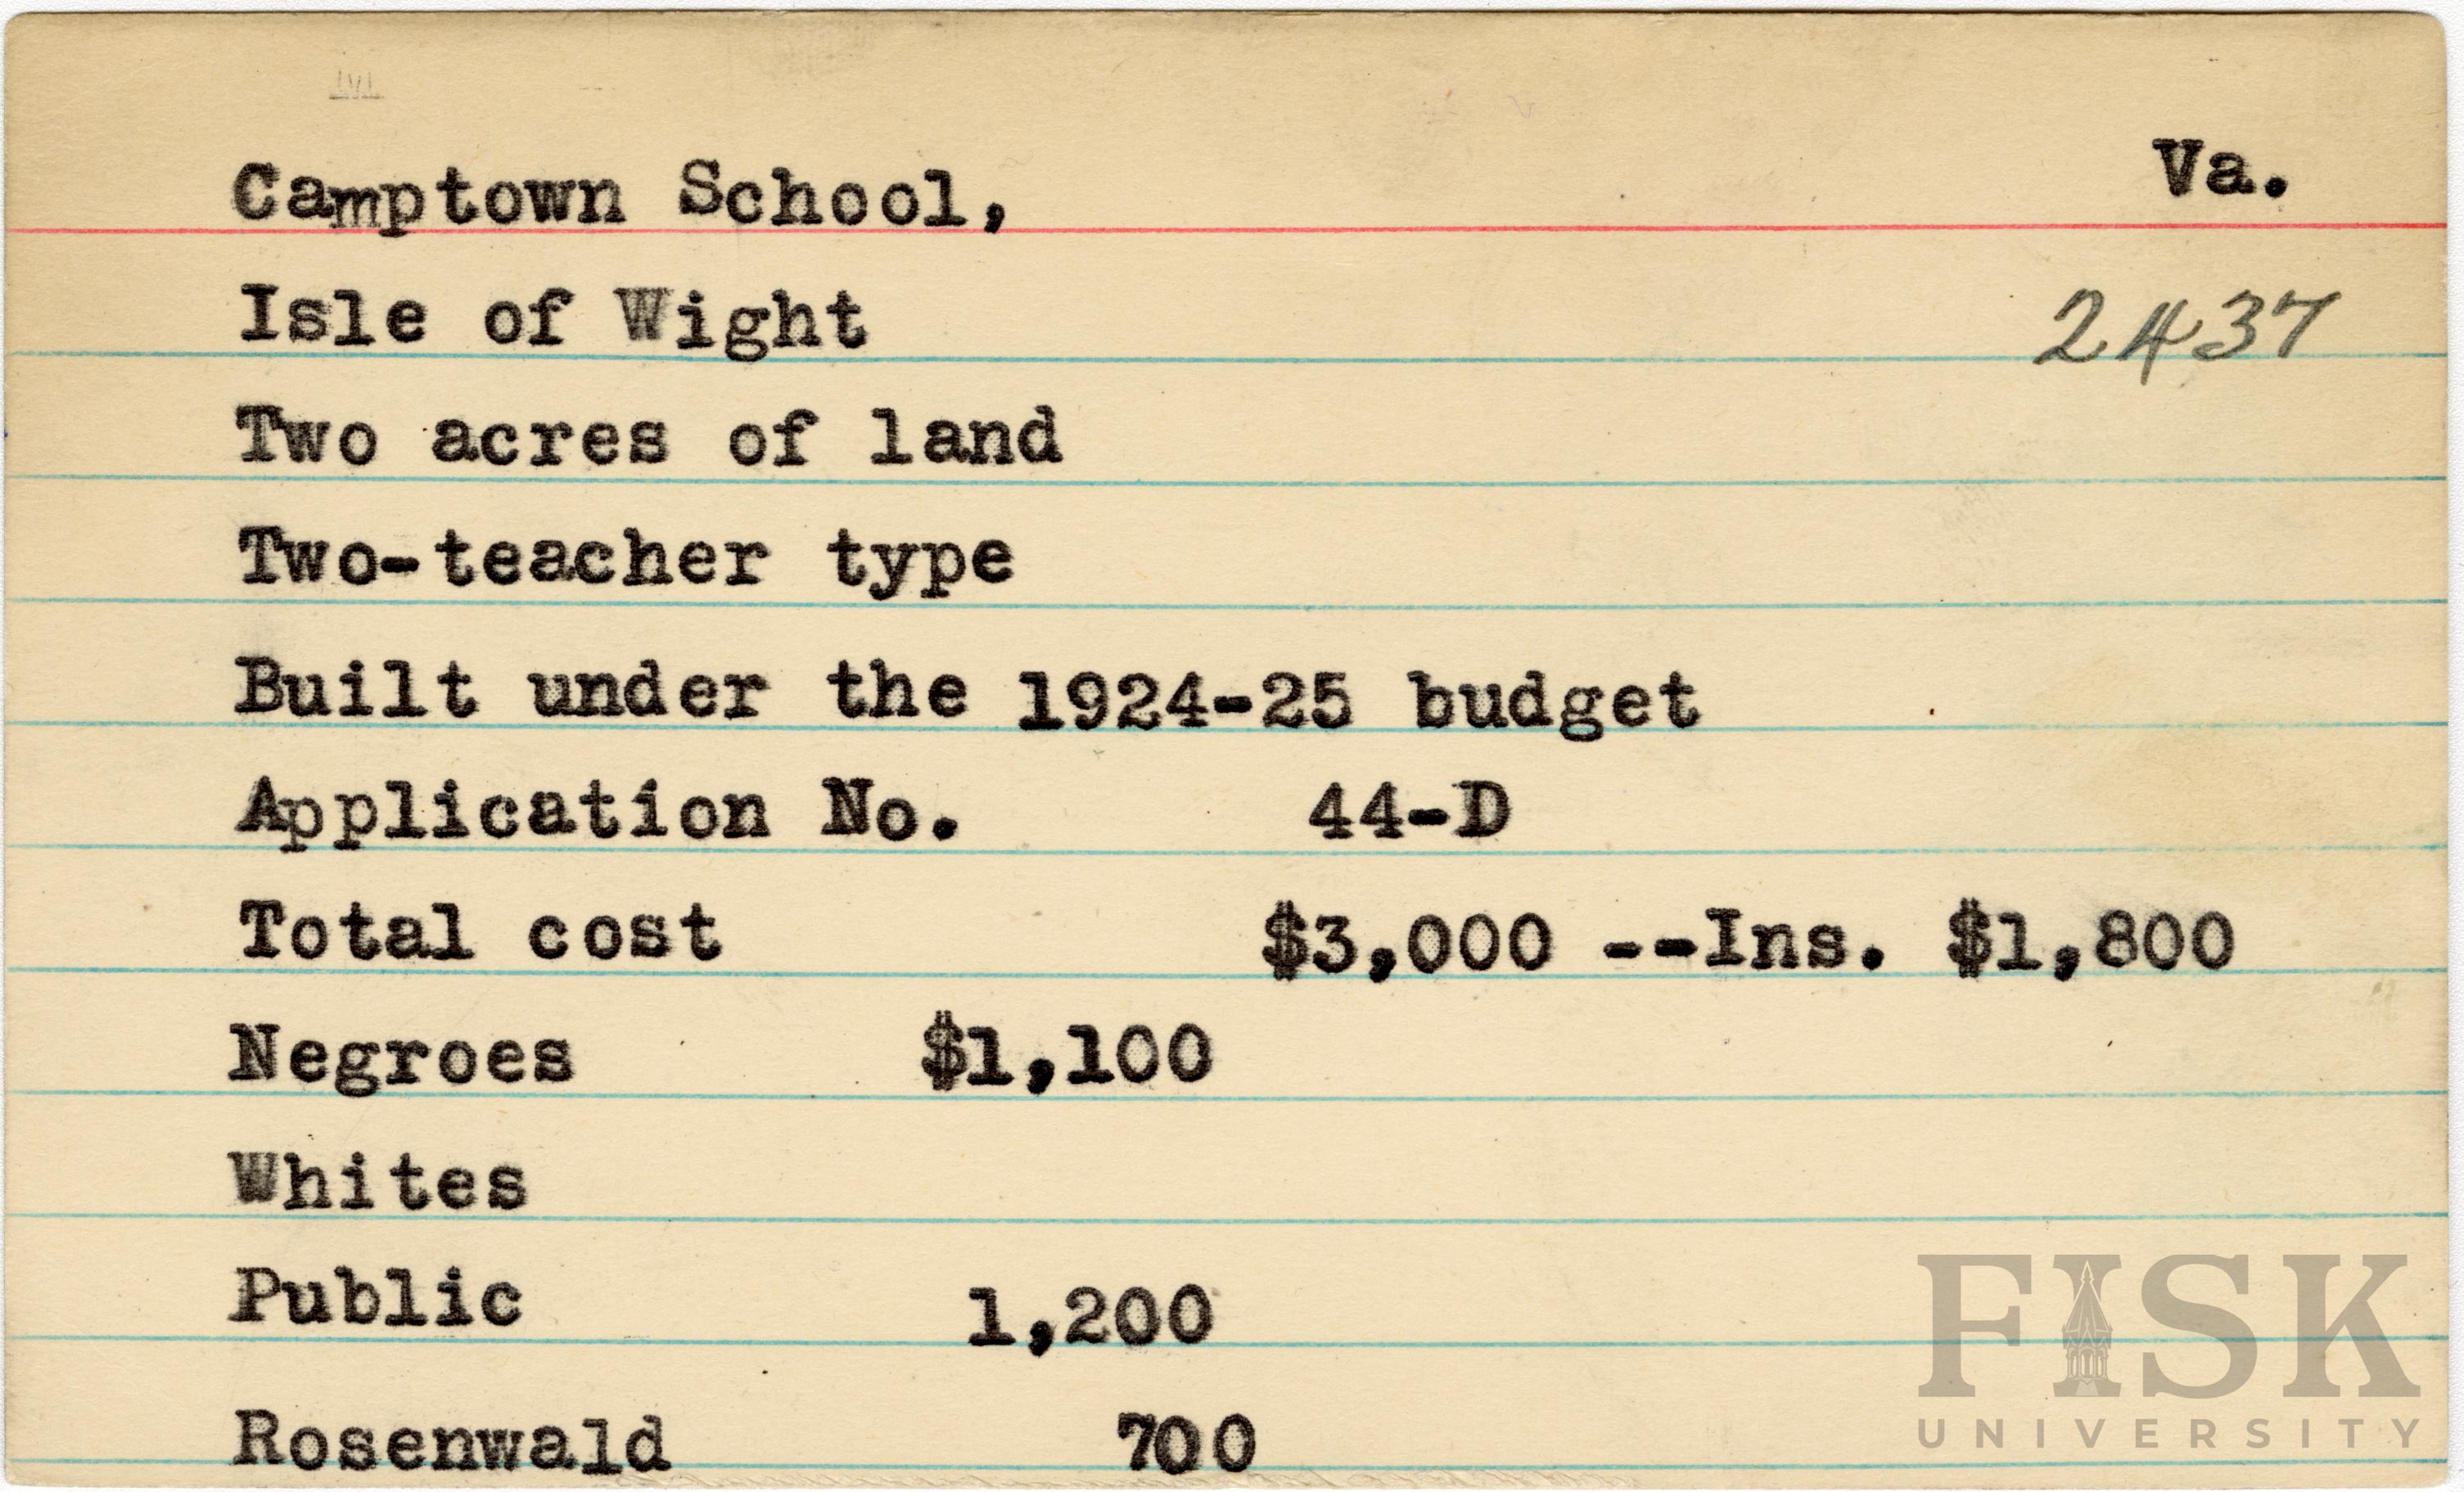 Camptown School, Va.
Isle of Wight 2437
Two acres of land
Two-teacher type
Built under the 1924-25 budget
Application No. 44-D
Total cost $3,000 --Ins. $1,800
Negroes $1,100
Whites
Public 1,200
Rosenwald 700
FISK
UNIVERSITY